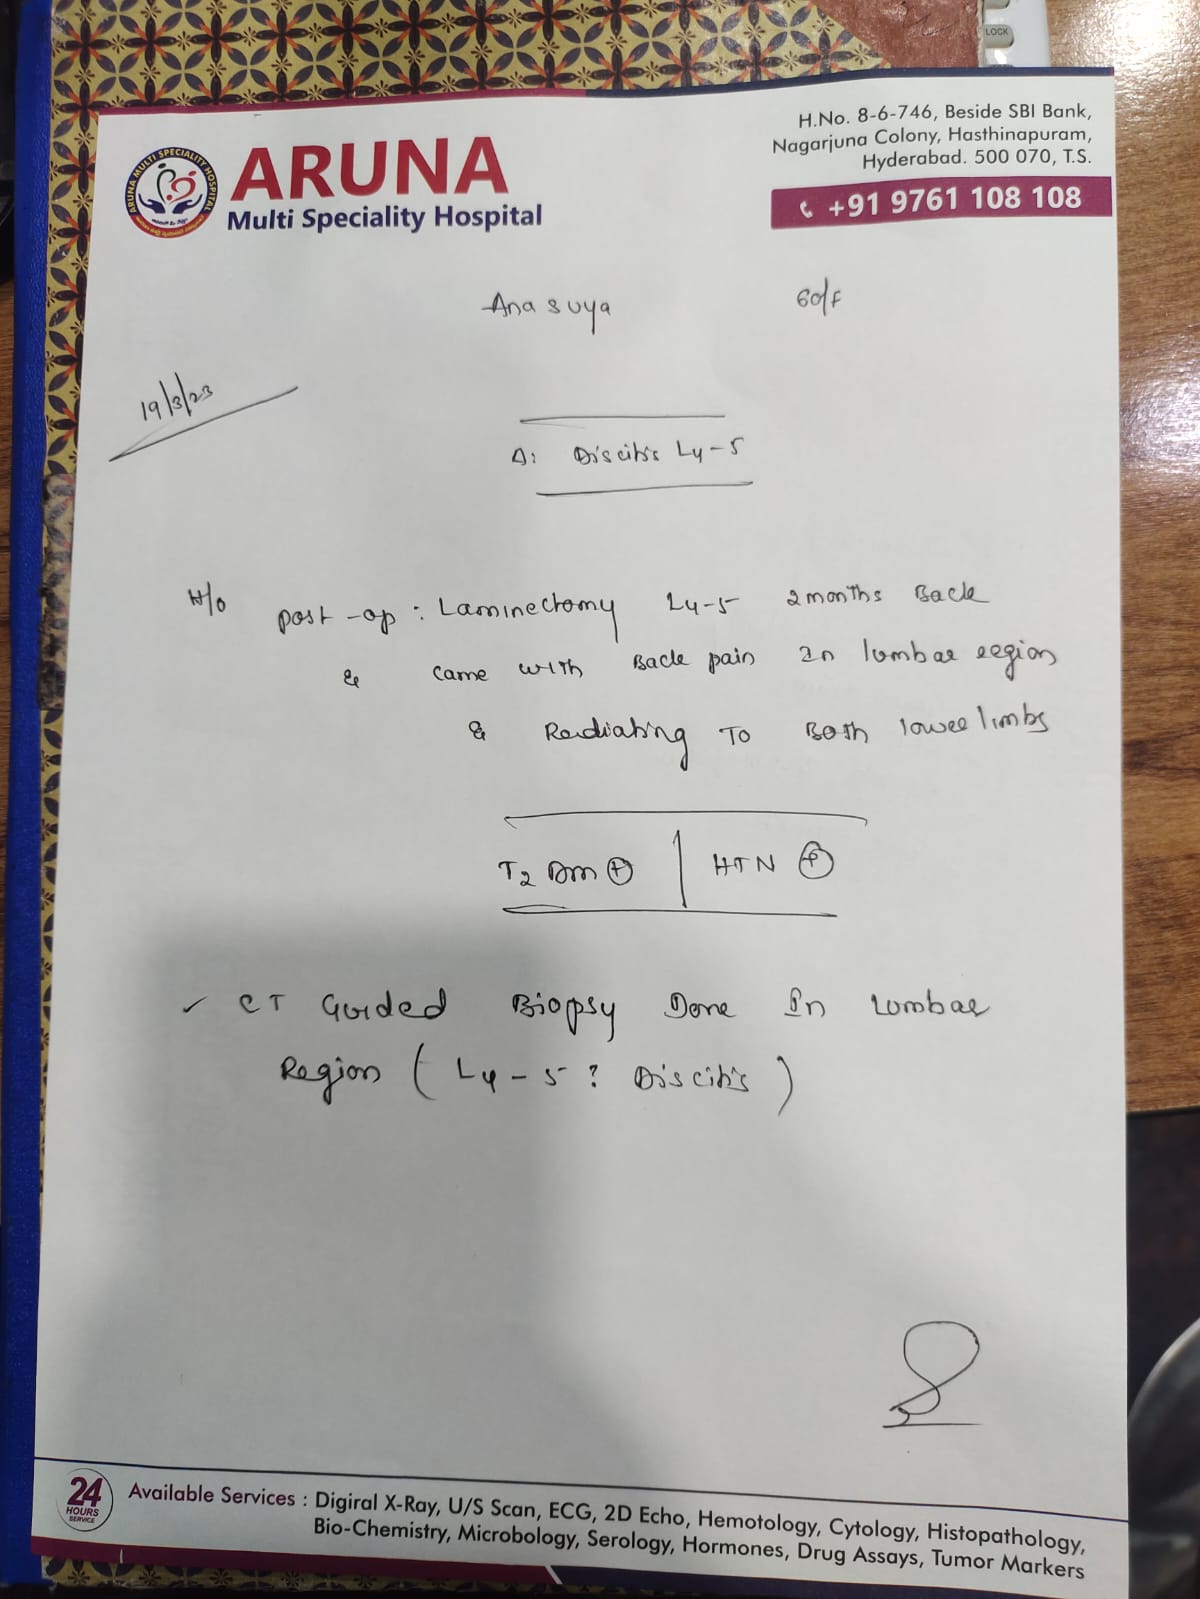 LOCK
H.No. 8-6-746, Beside SBI Bank,
Nagarjuna Colony, Hasthinapuram,
Hyderabad. 500 070, T.S.
+91 9761 108 108
ARUNA MULTI SPECIALITY HOSPITAL
ARUNA
Multi Speciality Hospital
Anasuya 60/F
19/3/23
Δ: Discitis L4-5
H/o post-op: Laminectomy L4-5 2 months Back
& came with Back pain In lumbar region
& Radiating To Both lower limbs
T2 DM ⊕ | HTN ⊕
✓ CT Guided Biopsy Done In Lumbar
Region ( L4-5 ? Discitis )
24
HOURS
SERVICE
Available Services : Digiral X-Ray, U/S Scan, ECG, 2D Echo, Hemotology, Cytology, Histopathology,
Bio-Chemistry, Microbology, Serology, Hormones, Drug Assays, Tumor Markers